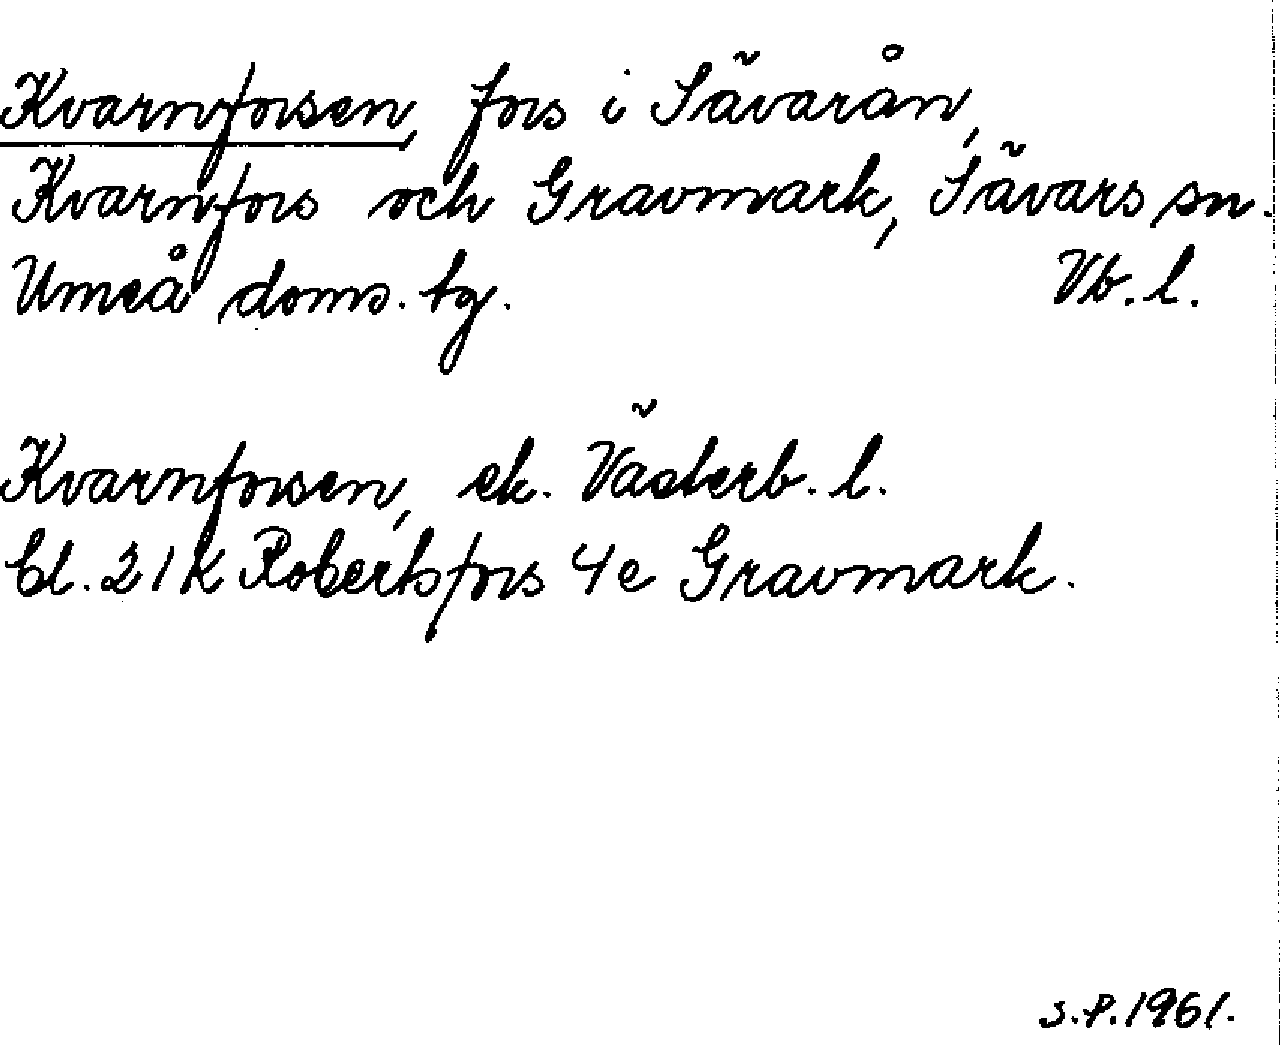 Kvarnforsen, fors i Sävarån,
Kvarnfors och Gravmark, Sävars sn.
Umeå doms. tg. Vb. l.
Kvarnforsen, ek. Västerb. l.
bl. 21K Robertsfors 4e Gravmark.
S.P. 1961.